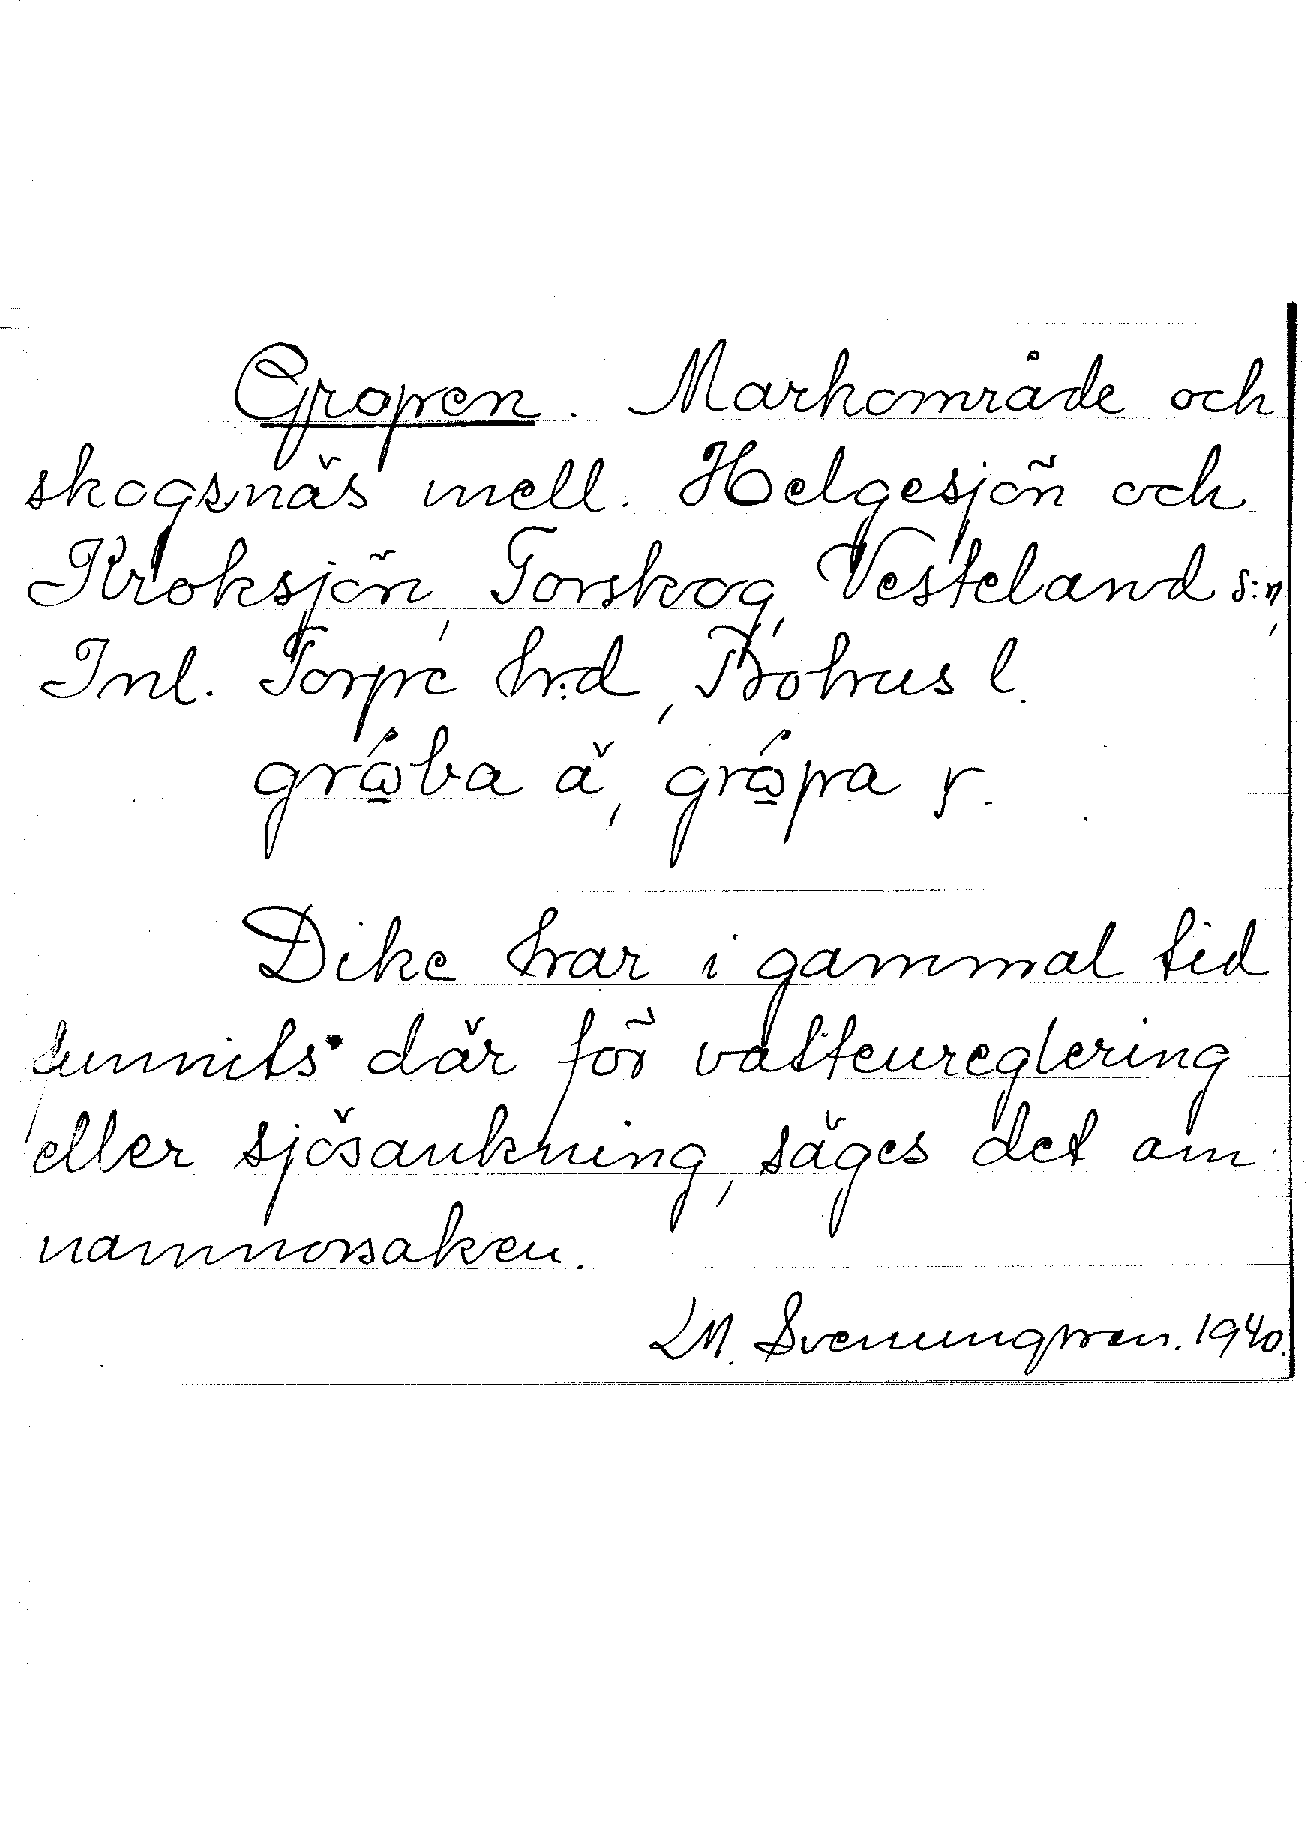 Gropen. Markområde och
skogsnäs mell. Helgesjön och
Kroksjön, Torskog, Vesteland s:n,
Inl. Torpe h:d, Bohus l.
grώ̲ba ä, grώ̲pa y.
Dike har i gammal tid
funnits där för vattenreglering
eller sjösänkning, säges det om
namnorsaken.
LM. Svenungsson. 1940.